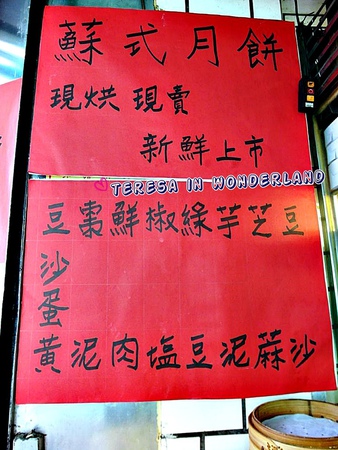 蘇式月餅
現烘現賣
新鮮上市
TERESA IN WONDERLAND
豆沙
芝蔴
芋泥
綠豆
椒塩
鮮肉
棗泥
豆沙蛋黃